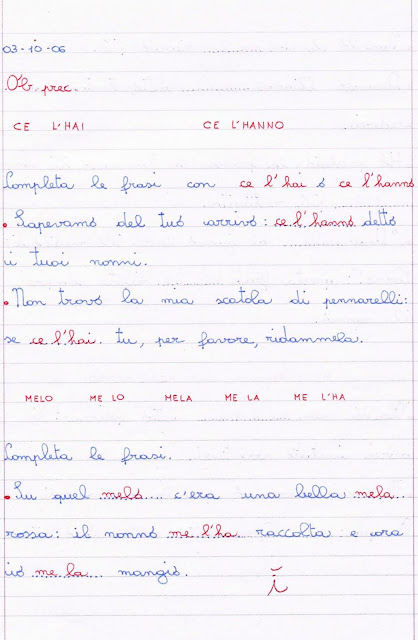 03-10-06
Ob. prec.
CE L'HAI CE L'HANNO
Completa le frasi con ce l'hai o ce l'hanno
• Sapevamo del tuo arrivo: ce l'hanno detto
i tuoi nonni.
• Non trovo la mia scatola di pennarelli:
se ce l'hai tu, per favore, ridammela.
MELO ME LO MELA ME LA ME L'HA
Completa le frasi.
• Su quel melo.... c'era una bella mela....
rossa: il nonno me l'ha raccolta e ora
io me la.... mangio.
i